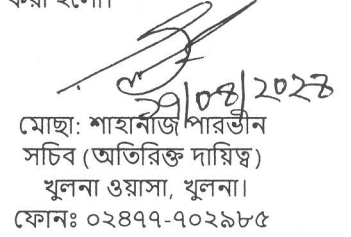 করা হলো।
২৭/০৪/২০২৪
মোছা: শাহানাজ পারভীন
সচিব (অতিরিক্ত দায়িত্ব)
খুলনা ওয়াসা, খুলনা।
ফোনঃ ০২৪৭৭-৭০২৯৮৫